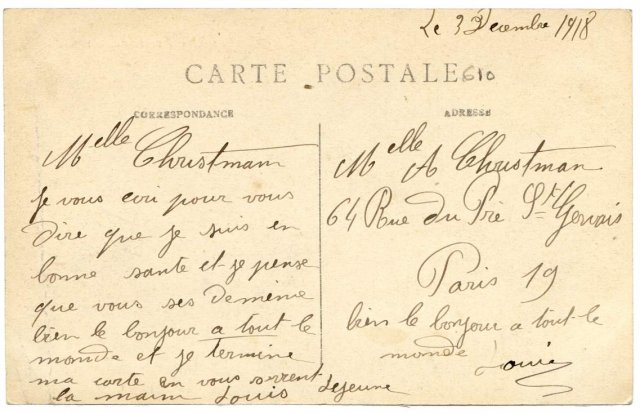 Le 3 Decembre 1918
CARTE POSTALE 610
CORRESPONDANCE
Melle Christmann
Je vous ecri pour vous
dire que je suis en
bonne sante et je pense
que vous ses de meme
bien le bonjour a tout le
monde et je termine
ma carte en vous serrent
la main Louis Lejeune
ADRESSE
Melle A Christman
64 Rue du Pré St Gervais
Paris 19
bien le bonjour a tout le
monde Louis